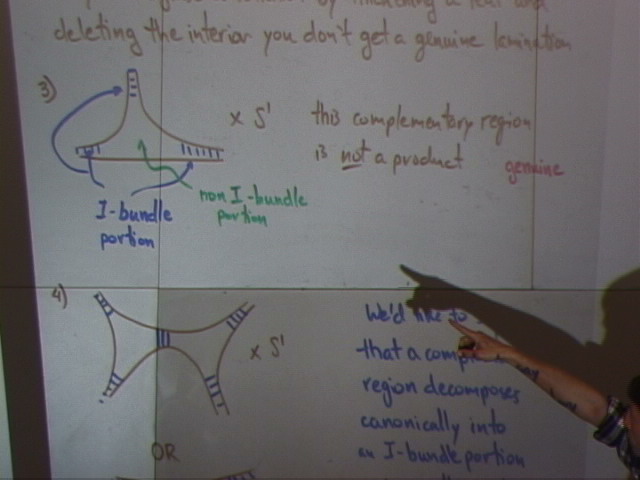 by thickening a leaf and
deleting the interior you don't get a genuine lamination
3)
x S'
this complementary region
is not a product
genuine
non I-bundle
portion
I-bundle
portion
4)
x S'
OR
We'd like to
that a
region decomposes
canonically into
an I-bundle portion